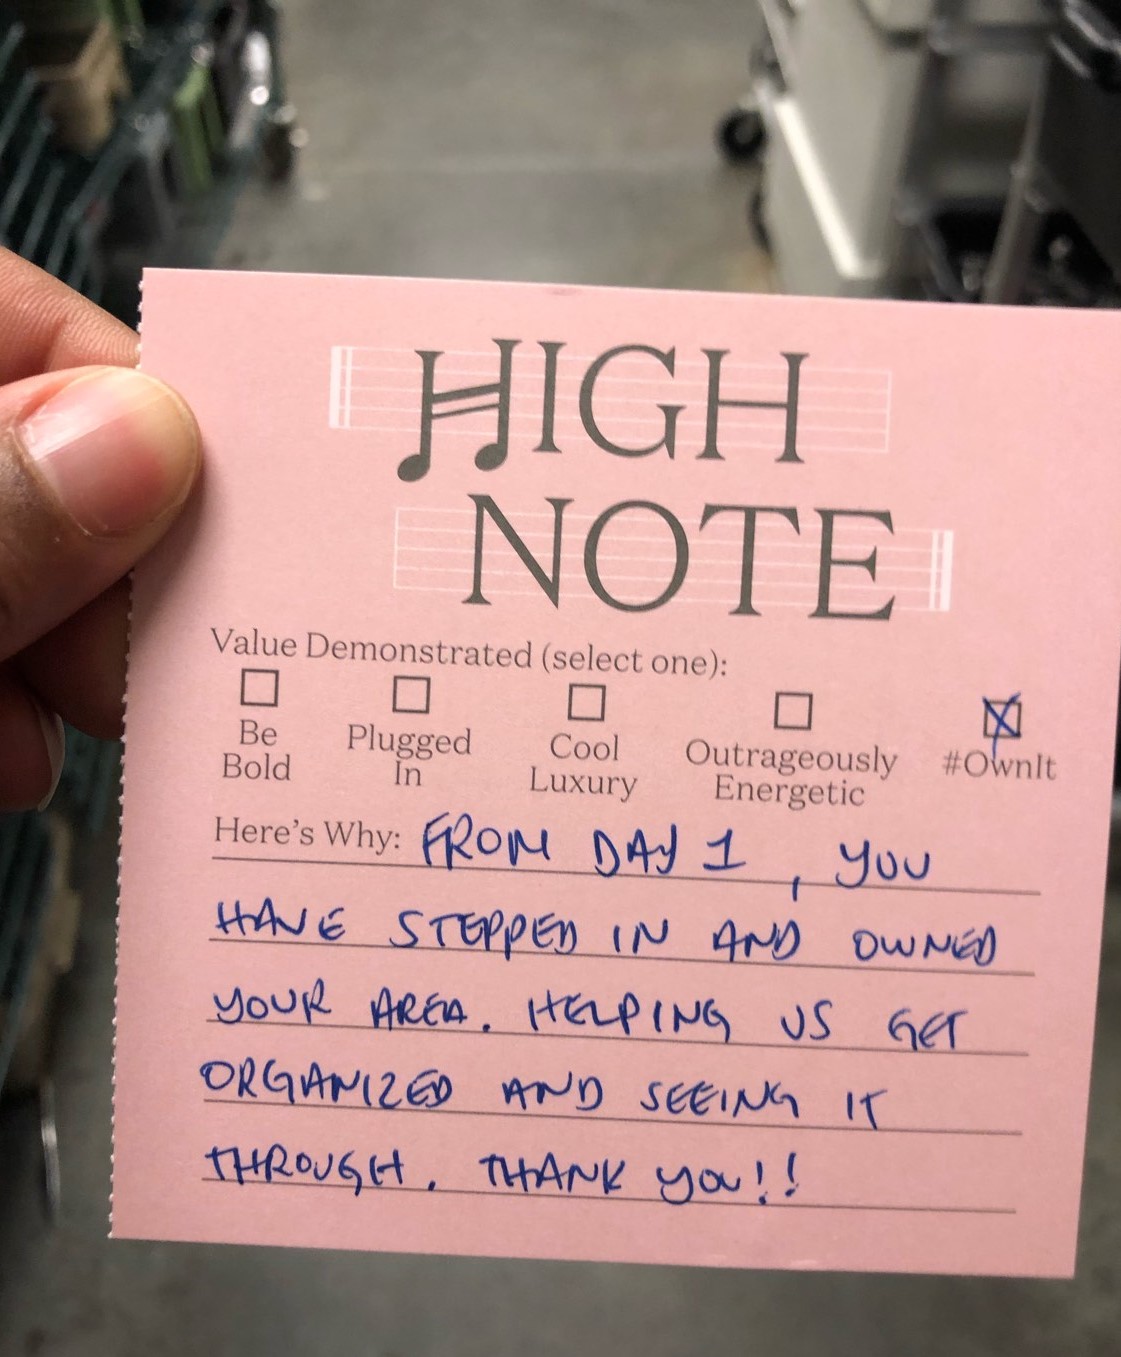 HIGH
NOTE
Value Demonstrated (select one):
Be Bold
Plugged In
Cool Luxury
Outrageously Energetic
#OwnIt
Here's Why: FROM DAY 1, YOU
HAVE STEPPED IN AND OWNED
YOUR AREA. HELPING US GET
ORGANIZED AND SEEING IT
THROUGH. THANK YOU!!